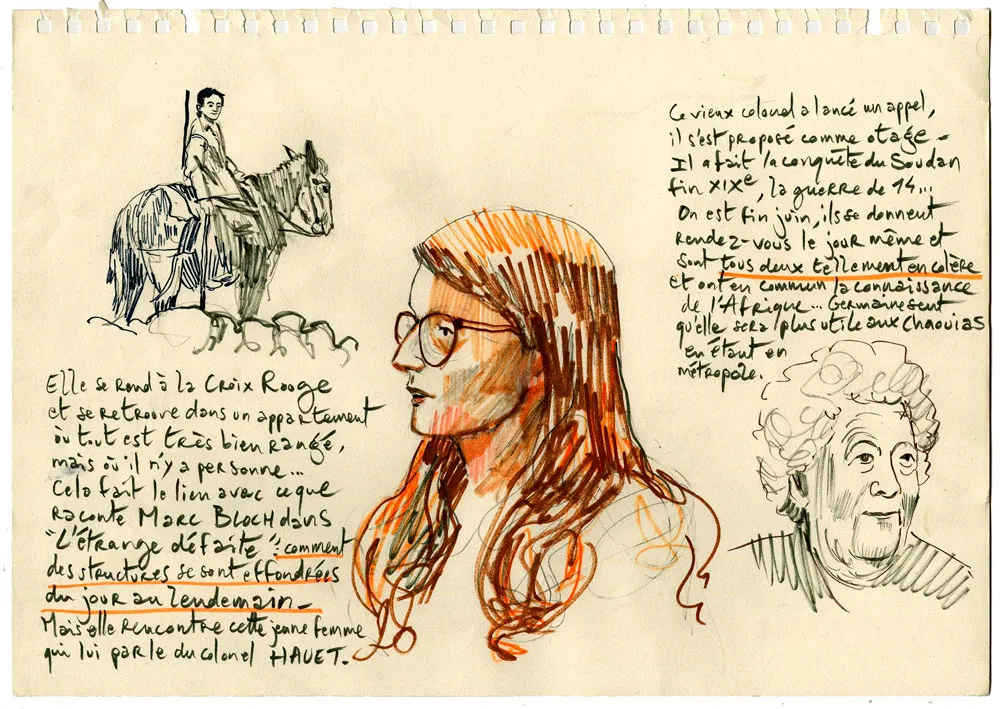 Elle se rend à la CROIX Rouge
et se retrouve dans un appartement
où tout est très bien rangé,
mais où il n'y a personne...
Cela fait le lien avec ce que
raconte MARC BLOCH dans
"L'étrange défaite" : comment
des structures se sont effondrées
du jour au lendemain_
Mais elle rencontre cette jeune femme
qui lui parle du colonel HAUET.
Ce vieux colonel a lancé un appel,
il s'est proposé comme otage_
Il a fait la conquête du Soudan
fin XIXe, la guerre de 14...
On est fin juin, ils se donnent
rendez-vous le jour même et
sont tous deux tellement en colère
et ont en commun la connaissance
de l'Afrique... Germaine sent
qu'elle sera plus utile aux Chaouias
en étant en
métropole.